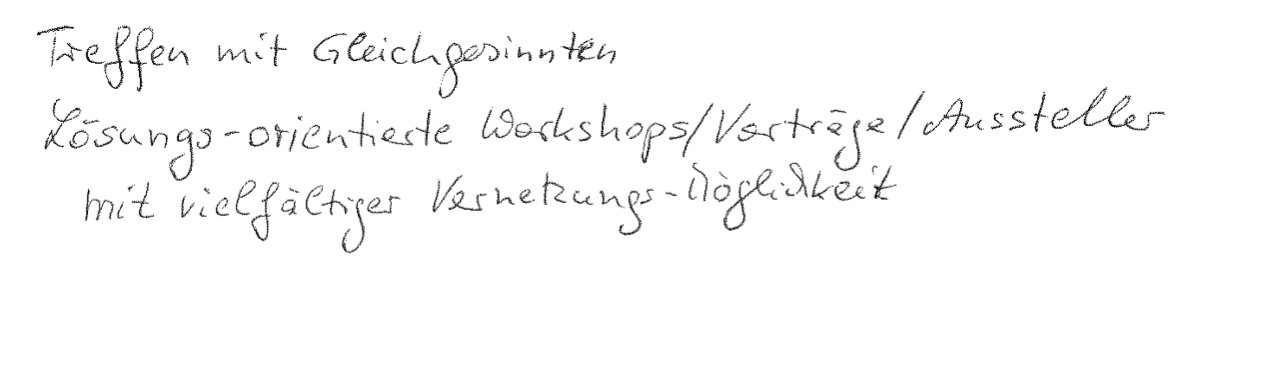 Treffen mit Gleichgesinnten
Lösungs-orientierte Workshops/Vorträge/Aussteller
mit vielfältiger Vernetzungs-Möglichkeit